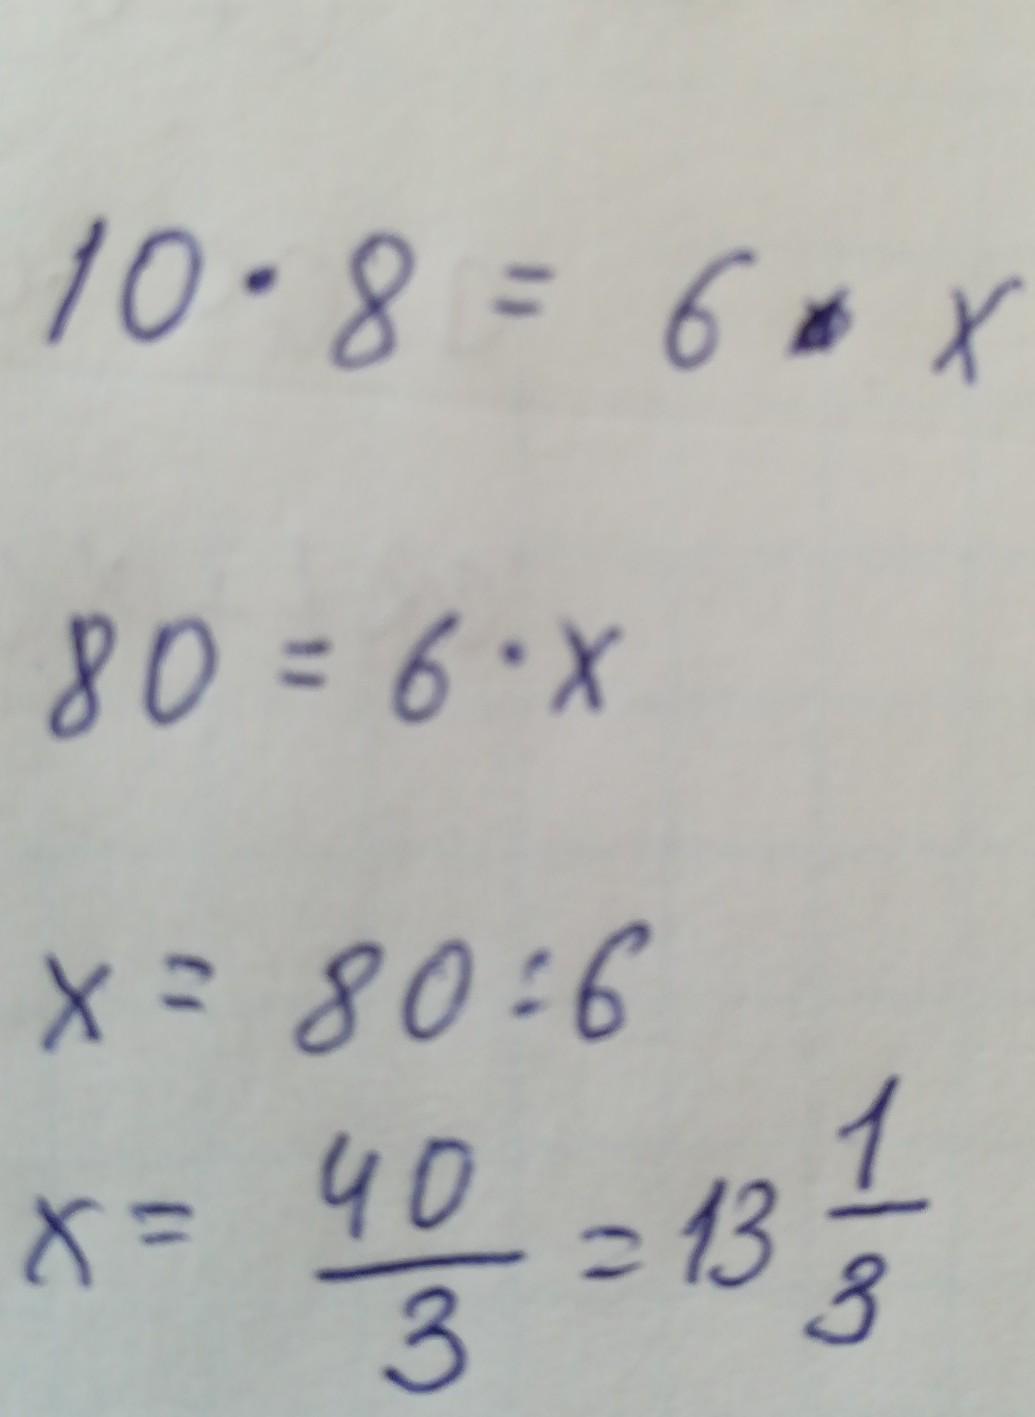 10 · 8 = 6 · x
80 = 6 · x
x = 80 : 6
x = 40/3 = 13 1/3